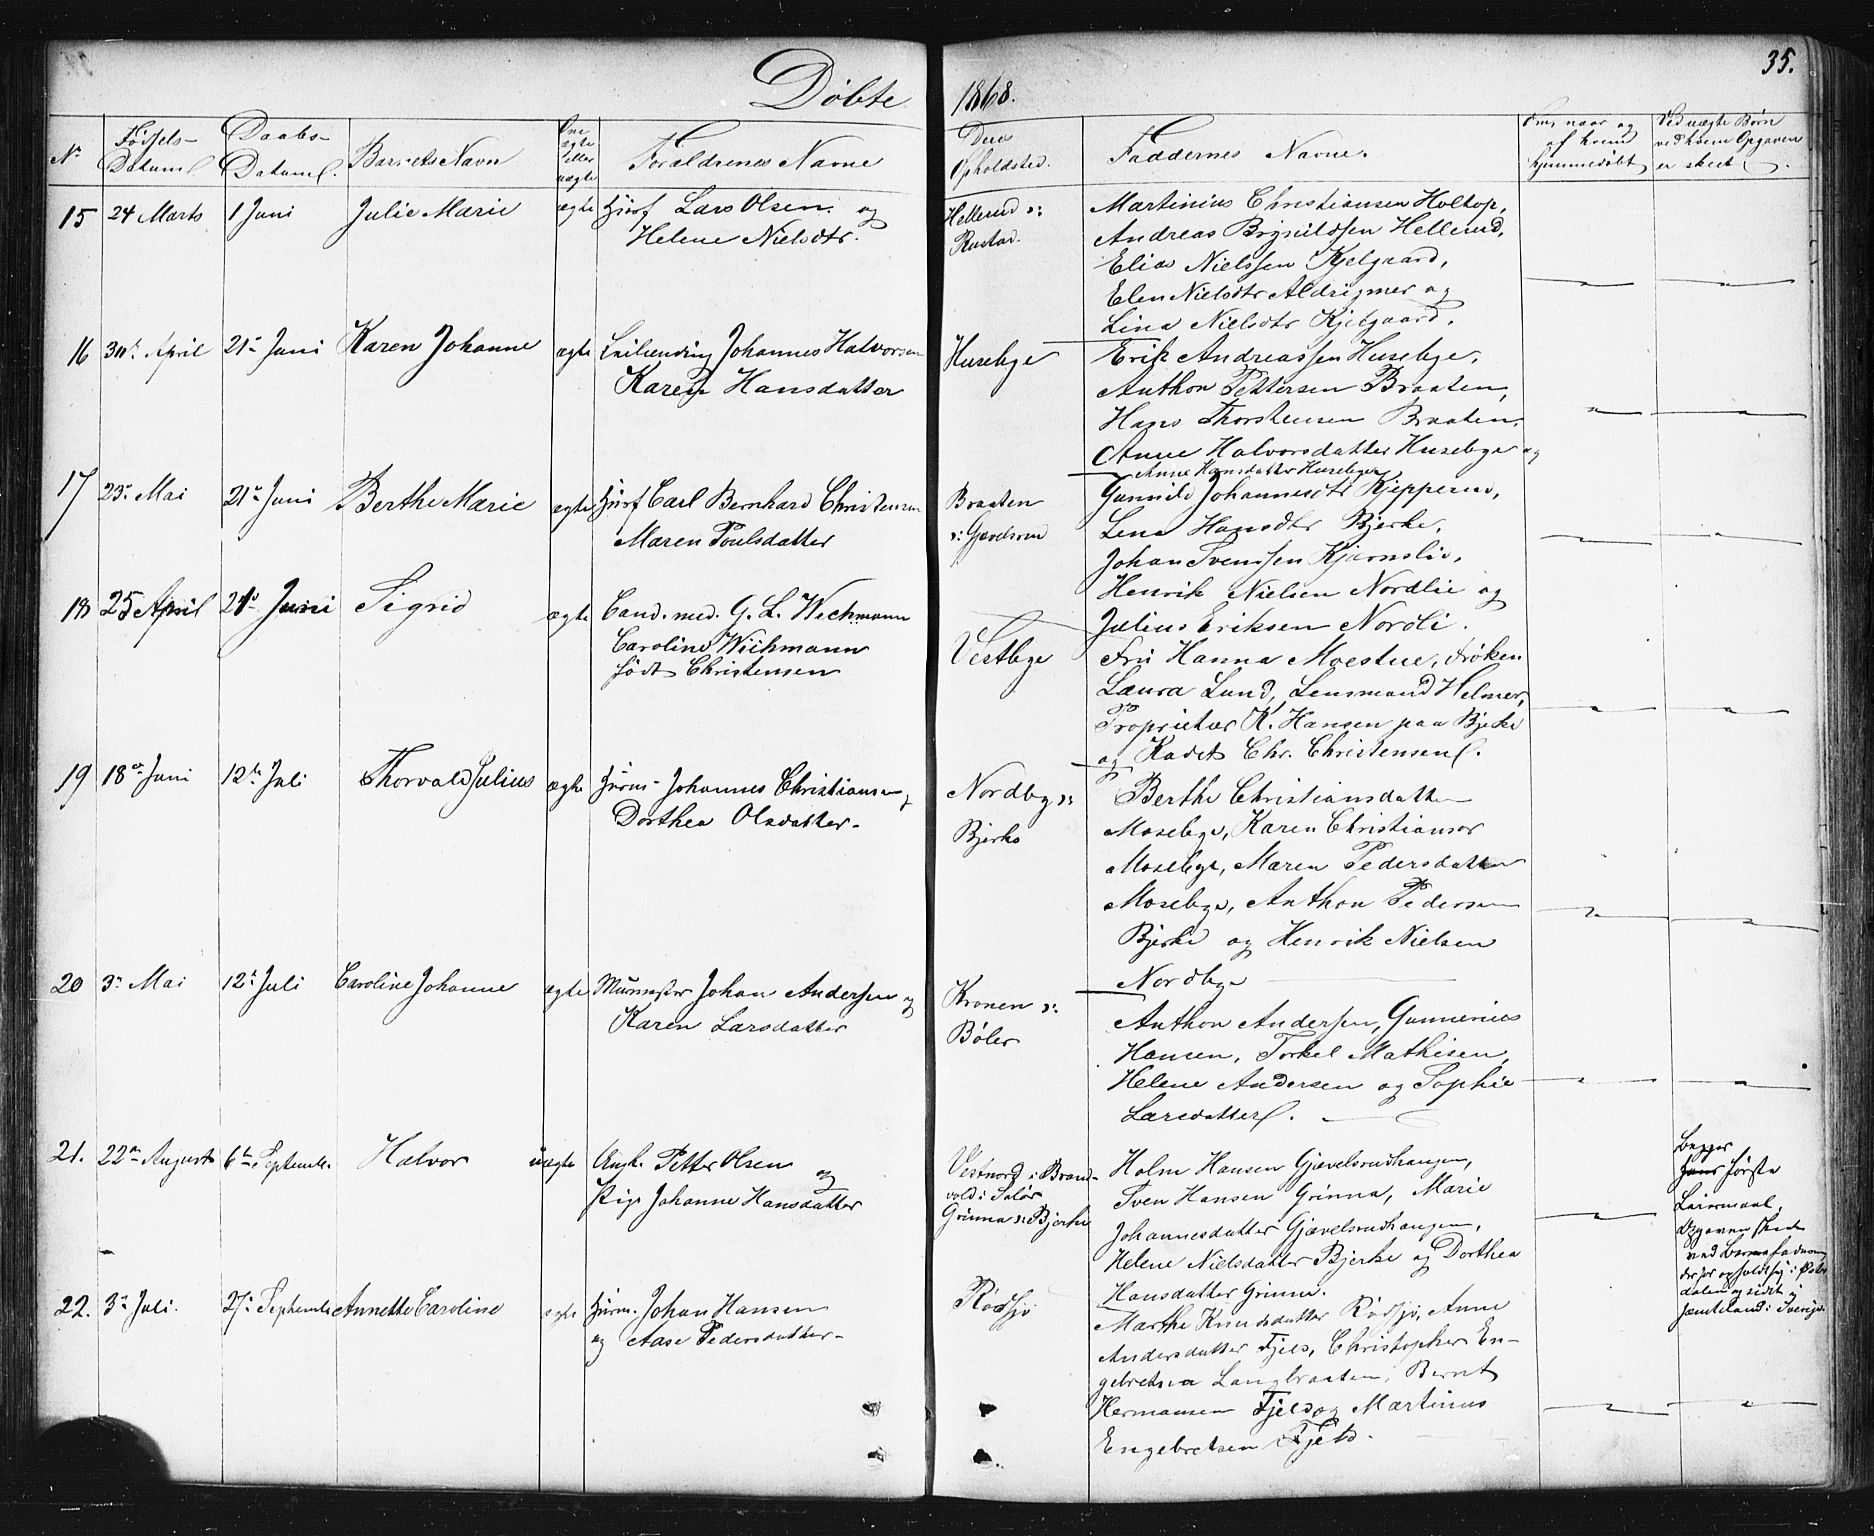 Døbte 1868. 35.
No Fødsels-Datum Daabs-Datum Barnets Navn Om ægte eller uægte Forældrenes Navne Deres Opholdsted. Faddernes Navne. Om, naar og af hvem hjemmedøbt Ved uægte Børn ved hvem Opgaven er skeet.
15 24 Marts 1 Juni Julie Marie ægte Huusf Lars Olsen og
Helene Nielsdtr.
Hellerud v:
Rustad.
Martinius Christiansen Holtop,
Andreas Brynildsen Hellerud,
Elias Nielssen Kjelgaard,
Elen Nielsdtr Aldrigmer og
Lina Nielsdtr Kjelgaard.
16 30te April 21de Juni Karen Johanne ægte Johannes Halvorsen
Karen Hansdatter
Husebye
Erik Andreassen Husebye,
Anthon Pettersen Braaten,
Hans Thorstensen Braaten,
Anne Halvorsdatter Husebye og
Anne Hansdatter Husebye
17 23de Mai 21de Juni Berthe Marie ægte Huusf Carl Bernhard Christensen
Maren Poulsdatter
Braaten
v: Gjævelsrud
Gunnild Johannesdtr Kjepperud,
Lena Hansdtr Bjerke,
Johan Svendsen Kjærnslie,
Henrik Nielsen Nordlie og
Julius Eriksen Nordli.
18 25 April 21de Juni Sigrid ægte Cand. med. G. L. Wichmann
Caroline Wichmann
født Christensen
Vestbye
Fru Hanna Moestue, Frøken
Laura Lund, Lensmand Helmer,
Proprietær K. Hansen paa Bjerke
og Kadet Chr. Christensen.
19 18de Juni 12te Juli Thorvald Julius ægte Huusm. Johannes Christiansen og
Dorthea Olsdatter.
Nordby v:
Bjerke
Berthe Christiansdatter
Mosebye, Karen Christiansdr
Mosebye, Maren Pedersdatter
Mosebye, Anthon Pedersen
Bjerke og Henrik Nielsen
Nordbye
20 3de Mai 12te Juli Caroline Johanne ægte Murmester Johan Andersen og
Karen Larsdatter
Kronen v:
Bøler
Anthon Andersen, Gunnerius
Hansen, Torkel Mathisen,
Helene Andersen og Sophie
Larsdatter.
21. 22de August 6te Septembr. Halvor uægte Ungk. Petter Olsen og
Pige Johanne Hansdatter
Vestnord i Brand-
vold i Solør
Grinna v: Bjerke
Holm Hansen Gjævelsrudhaugen,
Sven Hansen Grinna, Marie
Johannesdatter Gjævelsrudhaugen,
Helene Nielsdatter Bjerke og Dorthea
Hansdatter Grinna.
Begges
første
Leiermaal,
Opgaven skeet
ved Barnefaderen
der har opholdt sig i Øster
dalen og sidst i
Jæmteland i Sverige
22. 3de Juli. 27de Septembr Annette Caroline ægte Huusm. Johan Hansen
og Aase Pedersdatter.
Rødsjø
Marthe Knudsdatter Rødsjø, Anne
Andersdatter Fjeld, Christopher En-
gebretsen Langbraaten, Bernt
Hermansen Fjeld og Martinus
Engebretsen Fjeld.